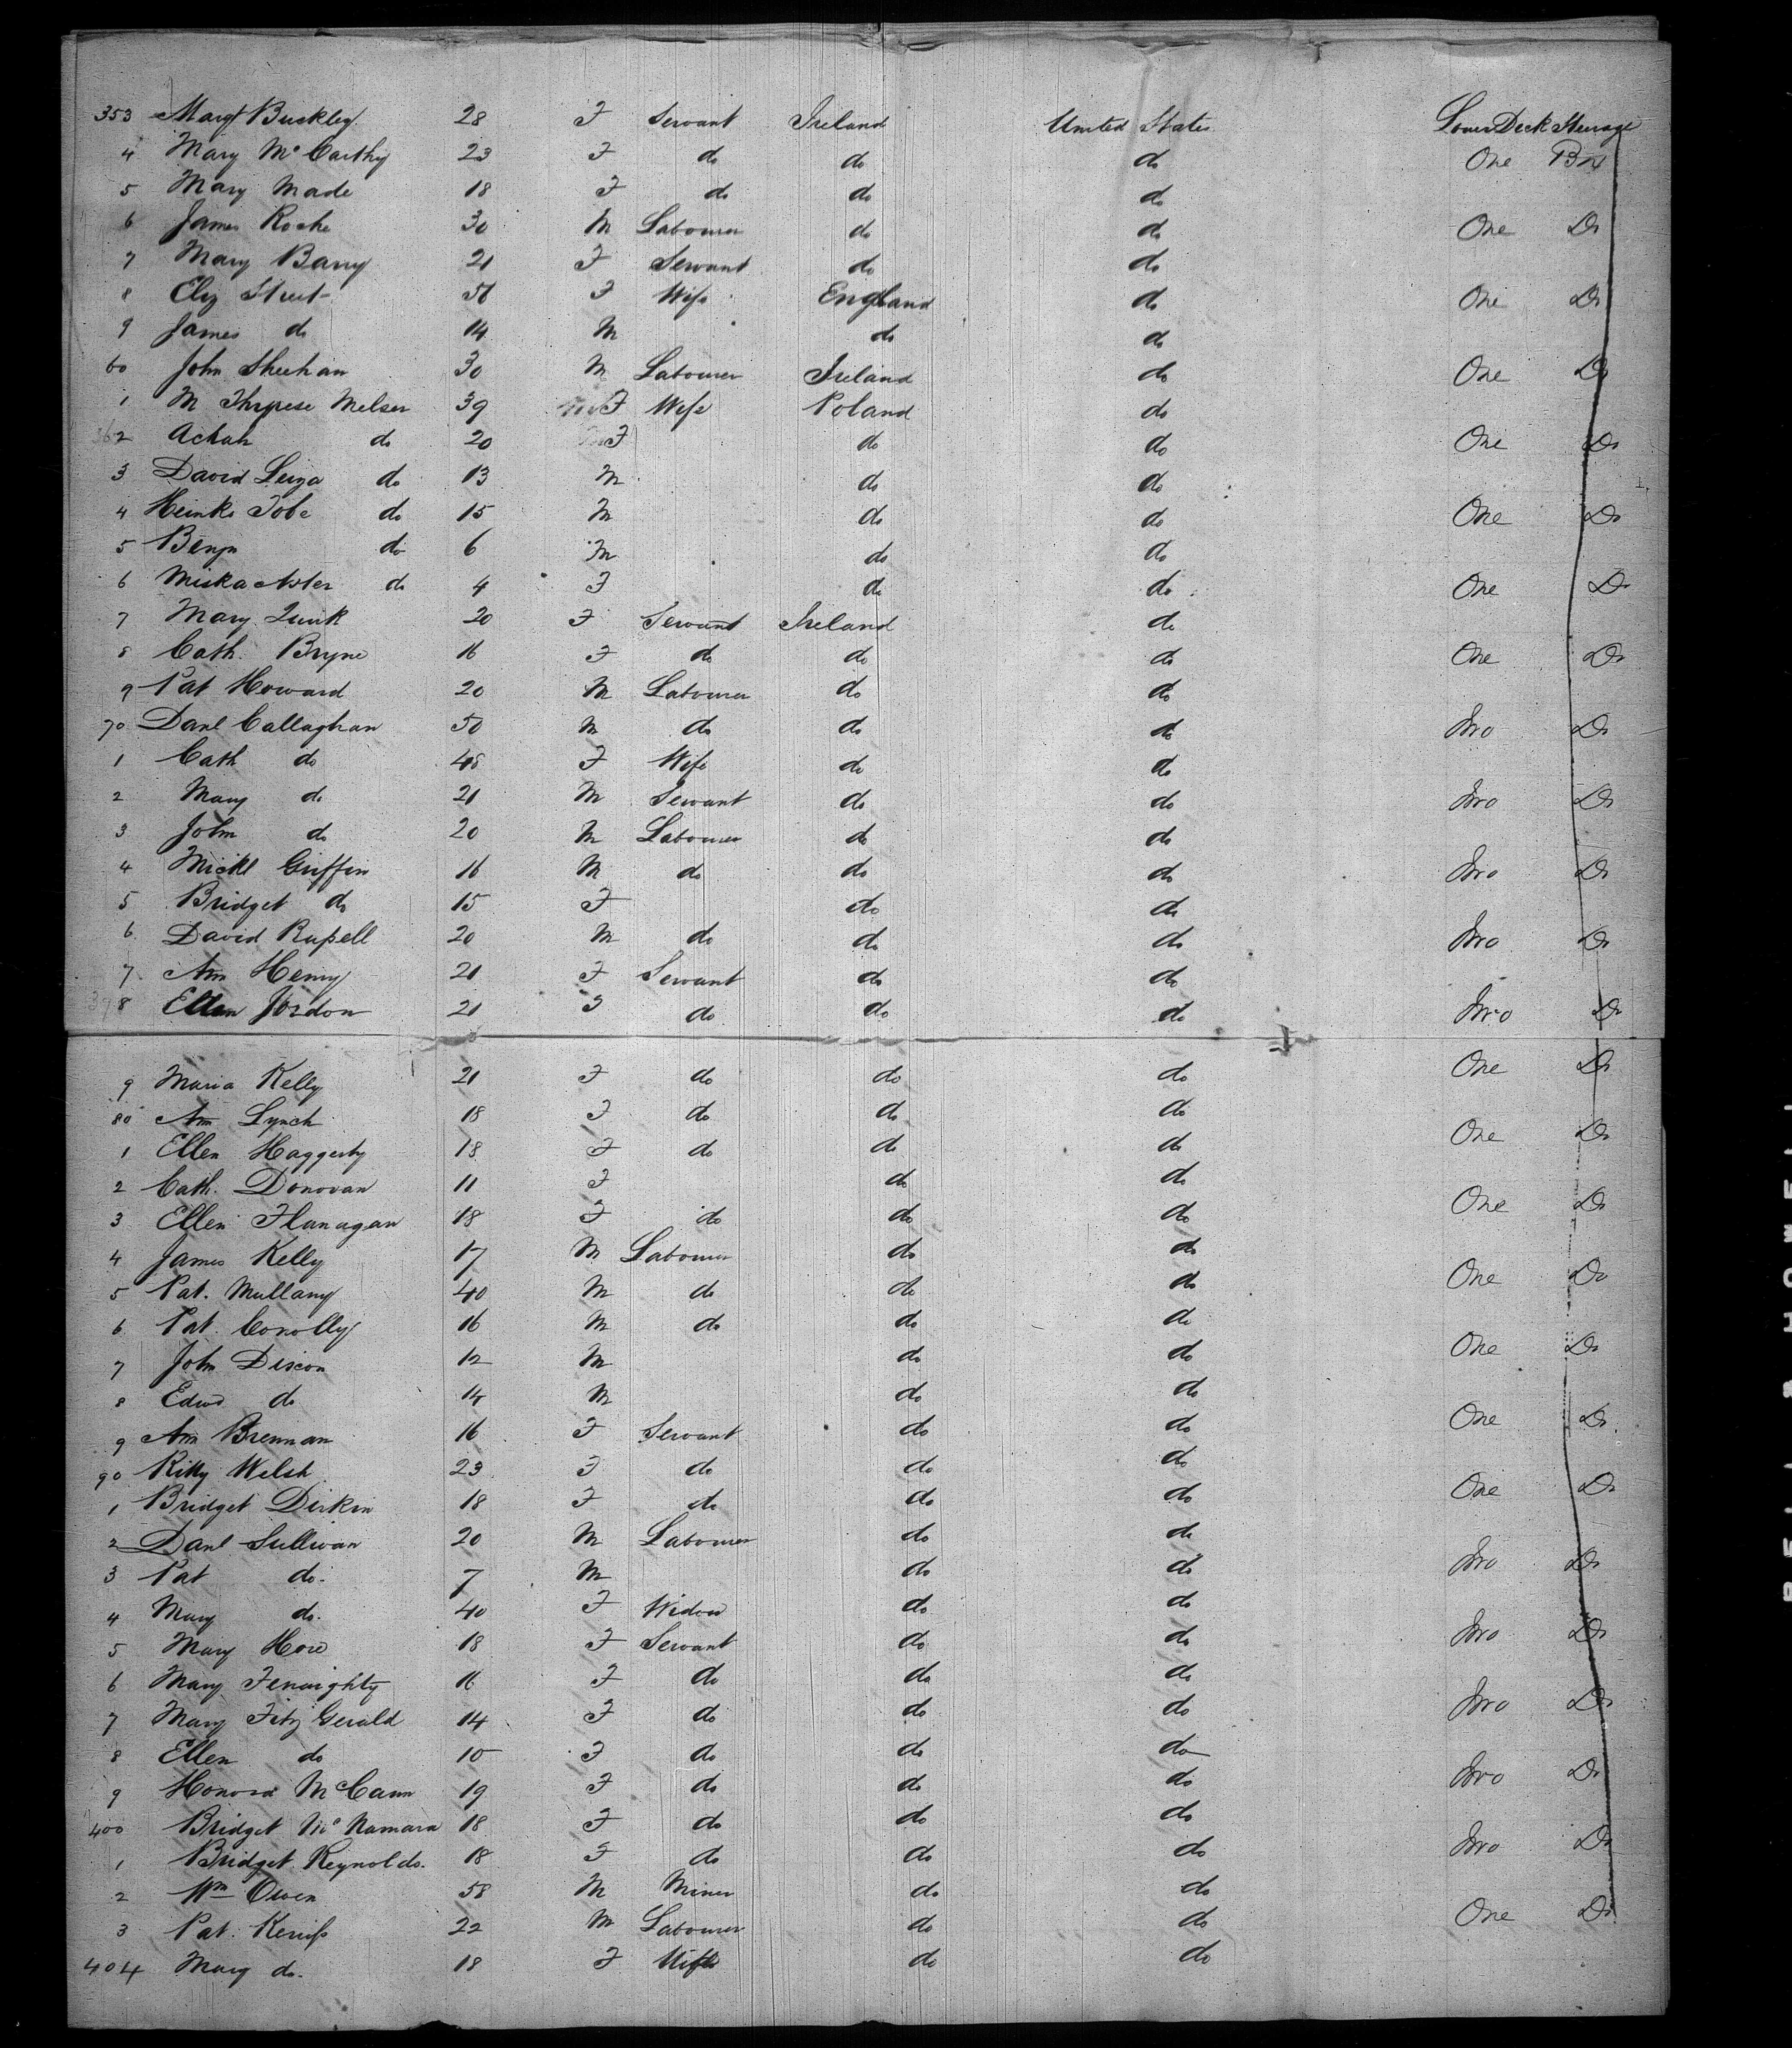 353 Margt Buckley 28 F Servant Ireland United States Lower Deck Steerage
4 Mary McCarthy 23 F do do do One Box
5 Mary Made 18 F do do do
6 James Roche 30 M Labourer do do One Do
7 Mary Barry 21 F Servant do do
8 Eliz Street 56 F Wife England do One Do
9 James do 14 M do do
60 John Sheehan 30 M Labourer Ireland do One Do
1 M Threse Melser 39 F Wife Poland do
362 Achah do 20 F do do One Do
3 David Leiza do 13 M do do
4 Heinke Tobe do 15 M do do One Do
5 Benjn do 6 M do do
6 Miska Aster do 4 F do do One Do
7 Mary Quirk 20 F Servant Ireland do
8 Cath. Bryne 16 F do do do One Do
9 Pat Howard 20 M Labourer do do
70 Danl Callaghan 50 M do do do Two Do
1 Cath do 48 F Wife do do
2 Mary do 21 M Servant do do Two Do
3 John do 20 M Labourer do do
4 Mickl Griffin 16 M do do do Two Do
5 Bridget do 15 F do do
6 David Russell 20 M do do do Two Do
7 Ann Henry 21 F Servant do do
378 Ellen Jordon 21 F do do do Two Do
9 Maria Kelly 21 F do do do One Do
80 Ann Lynch 18 F do do do
1 Ellen Haggerty 18 F do do do One Do
2 Cath. Donovan 11 F do do
3 Ellen Flanagan 18 F do do do One Do
4 James Kelly 17 M Labourer do do
5 Pat. Mullany 40 M do do do One Do
6 Pat. Conolly 16 M do do do
7 John Discon 12 M do do One Do
8 Edwd do 14 M do do
9 Ann Brennan 16 F Servant do do One Do
90 Kitty Welsh 23 F do do do
1 Bridget Dirkin 18 F do do do One Do
2 Danl Sullivan 20 M Labourer do do
3 Pat do. 7 M do do Two Do
4 Mary do. 40 F Widow do do
5 Mary Hore 18 F Servant do do Two Do
6 Mary Fenaighty 16 F do do do
7 Mary Fitz Gerald 14 F do do do Two Do
8 Ellen do 10 F do do do
9 Honora McCann 19 F do do do Two Do
400 Bridget McNamara 18 F do do do
1 Bridget Reynolds. 18 F do do do Two Do
2 Wm Owen 58 M Miner do do
3 Pat. Keniss 22 M Labourer do do One Do
404 Mary do. 18 F Wife do do